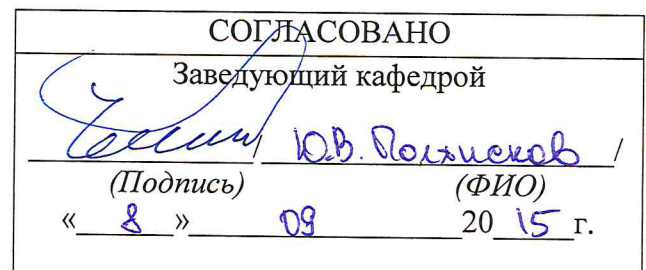 СОГЛАСОВАНО
Заведующий кафедрой
/ Ю.В. /
(Подпись) (ФИО)
« 8 » 09 20 15 г.